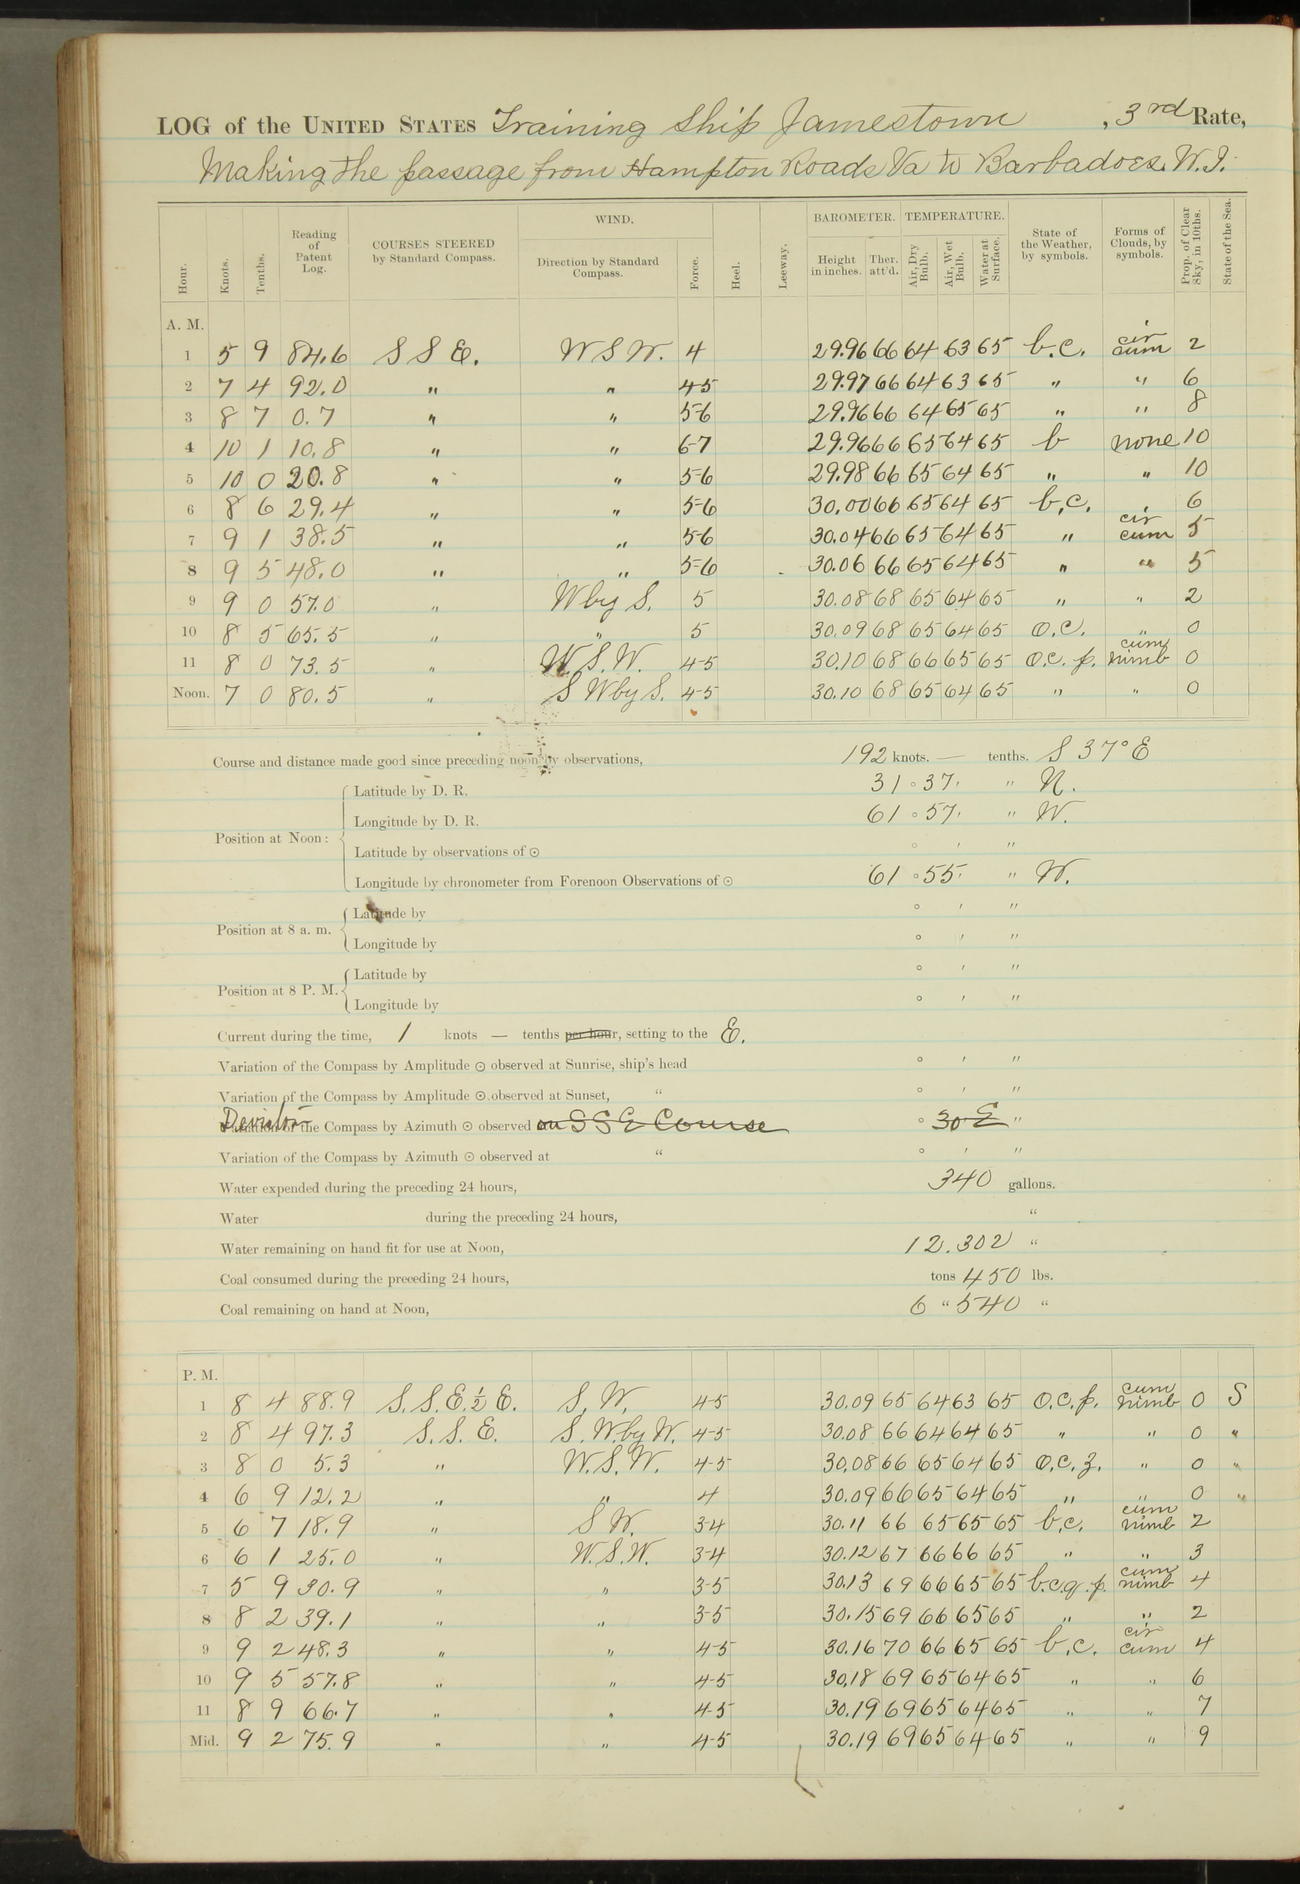 LOG of the UNITED STATES Training Ship Jamestown, 3rd Rate,
Making the passage from Hampton Roads Va to Barbadoes. W.I.
Hour. Knots. Tenths. Reading of Patent Log. COURSES STEERED by Standard Compass. WIND. Direction by Standard Compass. Force. Heel. Leeway. BAROMETER. Height in inches. Ther. att'd. TEMPERATURE. Air, Dry Bulb. Air, Wet Bulb. Water at Surface. State of the Weather, by symbols. Forms of Clouds, by symbols. Prop. of Clear Sky, in 10ths. State of the Sea.
A. M.
1 5 9 84.6 S S E. W S W. 4 29.96 66 64 63 65 b.c. cir cum 2
2 7 4 92.0 " " 4-5 29.97 66 64 63 65 " " 6
3 8 7 0.7 " " 5-6 29.96 66 64 65 65 " " 8
4 10 1 10.8 " " 6-7 29.96 66 65 64 65 b none 10
5 10 0 20.8 " " 5-6 29.98 66 65 64 65 " " 10
6 8 6 29.4 " " 5-6 30.00 66 65 64 65 b.c. 6
7 9 1 38.5 " " 5-6 30.04 66 65 64 65 " cir cum 5
8 9 5 48.0 " " 5-6 30.06 66 65 64 65 " " 5
9 9 0 57.0 " W by S. 5 30.08 68 65 64 65 " " 2
10 8 5 65.5 " " 5 30.09 68 65 64 65 O.C. " 0
11 8 0 73.5 " W. S. W. 4-5 30.10 68 66 65 65 O.C. p. cum nimb 0
Noon. 7 0 80.5 " S W by S. 4-5 30.10 68 65 64 65 " " 0
Course and distance made good since preceding noon by observations, 192 knots. — tenths. S 37° E
Position at Noon: Latitude by D. R. 31 ° 37 ' " N.
Longitude by D. R. 61 ° 57 ' " W.
Latitude by observations of ☉ ° ' "
Longitude by chronometer from Forenoon Observations of ☉ 61 ° 55 ' " W.
Position at 8 a. m. Latitude by ° ' "
Longitude by ° ' "
Position at 8 P. M. Latitude by ° ' "
Longitude by ° ' "
Current during the time, 1 knots — tenths per hour, setting to the E.
Variation of the Compass by Amplitude ☉ observed at Sunrise, ship's head ° ' "
Variation of the Compass by Amplitude ☉ observed at Sunset, " ° ' "
Variation of the Compass by Azimuth ☉ observed on S S E Course ° 30 E "
Variation of the Compass by Azimuth ☉ observed at " ° ' "
Water expended during the preceding 24 hours, 340 gallons.
Water during the preceding 24 hours, "
Water remaining on hand fit for use at Noon, 12.302 "
Coal consumed during the preceding 24 hours, tons 450 lbs.
Coal remaining on hand at Noon, 6 " 540 "
P. M.
1 8 4 88.9 S. S. E. ½ E. S. W. 4-5 30.09 65 64 63 65 O.C.p. cum nimb 0 S
2 8 4 97.3 S. S. E. S. W. by W. 4-5 30.08 66 64 64 65 " " 0 "
3 8 0 5.3 " W. S. W. 4-5 30.08 66 65 64 65 O.C.z. " 0 "
4 6 9 12.2 " " 4 30.09 66 65 64 65 " " 0 "
5 6 7 18.9 " S W. 3-4 30.11 66 65 65 65 b.c. cum nimb 2
6 6 1 25.0 " W. S. W. 3-4 30.12 67 66 66 65 " " 3
7 5 9 30.9 " " 3-5 30.13 69 66 65 65 b.c.q.p. cum nimb 4
8 8 2 39.1 " " 3-5 30.15 69 66 65 65 " " 2
9 9 2 48.3 " " 4-5 30.16 70 66 65 65 b.c. cir cum 4
10 9 5 57.8 " " 4-5 30.18 69 65 64 65 " " 6
11 8 9 66.7 " " 4-5 30.19 69 65 64 65 " " 7
Mid. 9 2 75.9 " " 4-5 30.19 69 65 64 65 " " 9